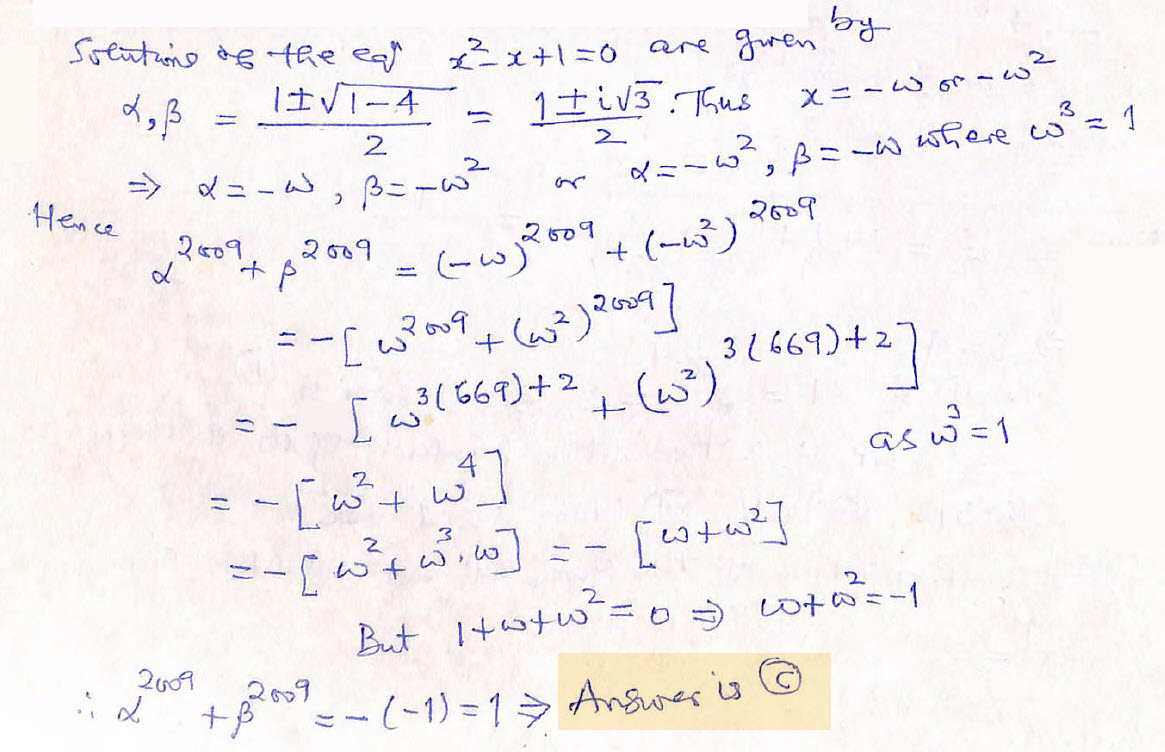 Solutions of the eqn x² - x + 1 = 0 are given by
α, β = (1 ± √(1-4))/2 = (1 ± i√3)/2 . Thus x = -ω or -ω²
⇒ α = -ω , β = -ω² or α = -ω² , β = -ω where ω³ = 1
Hence
α²⁰⁰⁹ + β²⁰⁰⁹ = (-ω)²⁰⁰⁹ + (-ω²)²⁰⁰⁹
= -[ω²⁰⁰⁹ + (ω²)²⁰⁰⁹]
= - [ω^(3(669)+2) + (ω²)^(3(669)+2)]
as ω³ = 1
= -[ω² + ω⁴]
= -[ω² + ω³.ω] = - [ω + ω²]
But 1 + ω + ω² = 0 ⇒ ω + ω² = -1
∴ α²⁰⁰⁹ + β²⁰⁰⁹ = -(-1) = 1 ⇒ Answer is ©